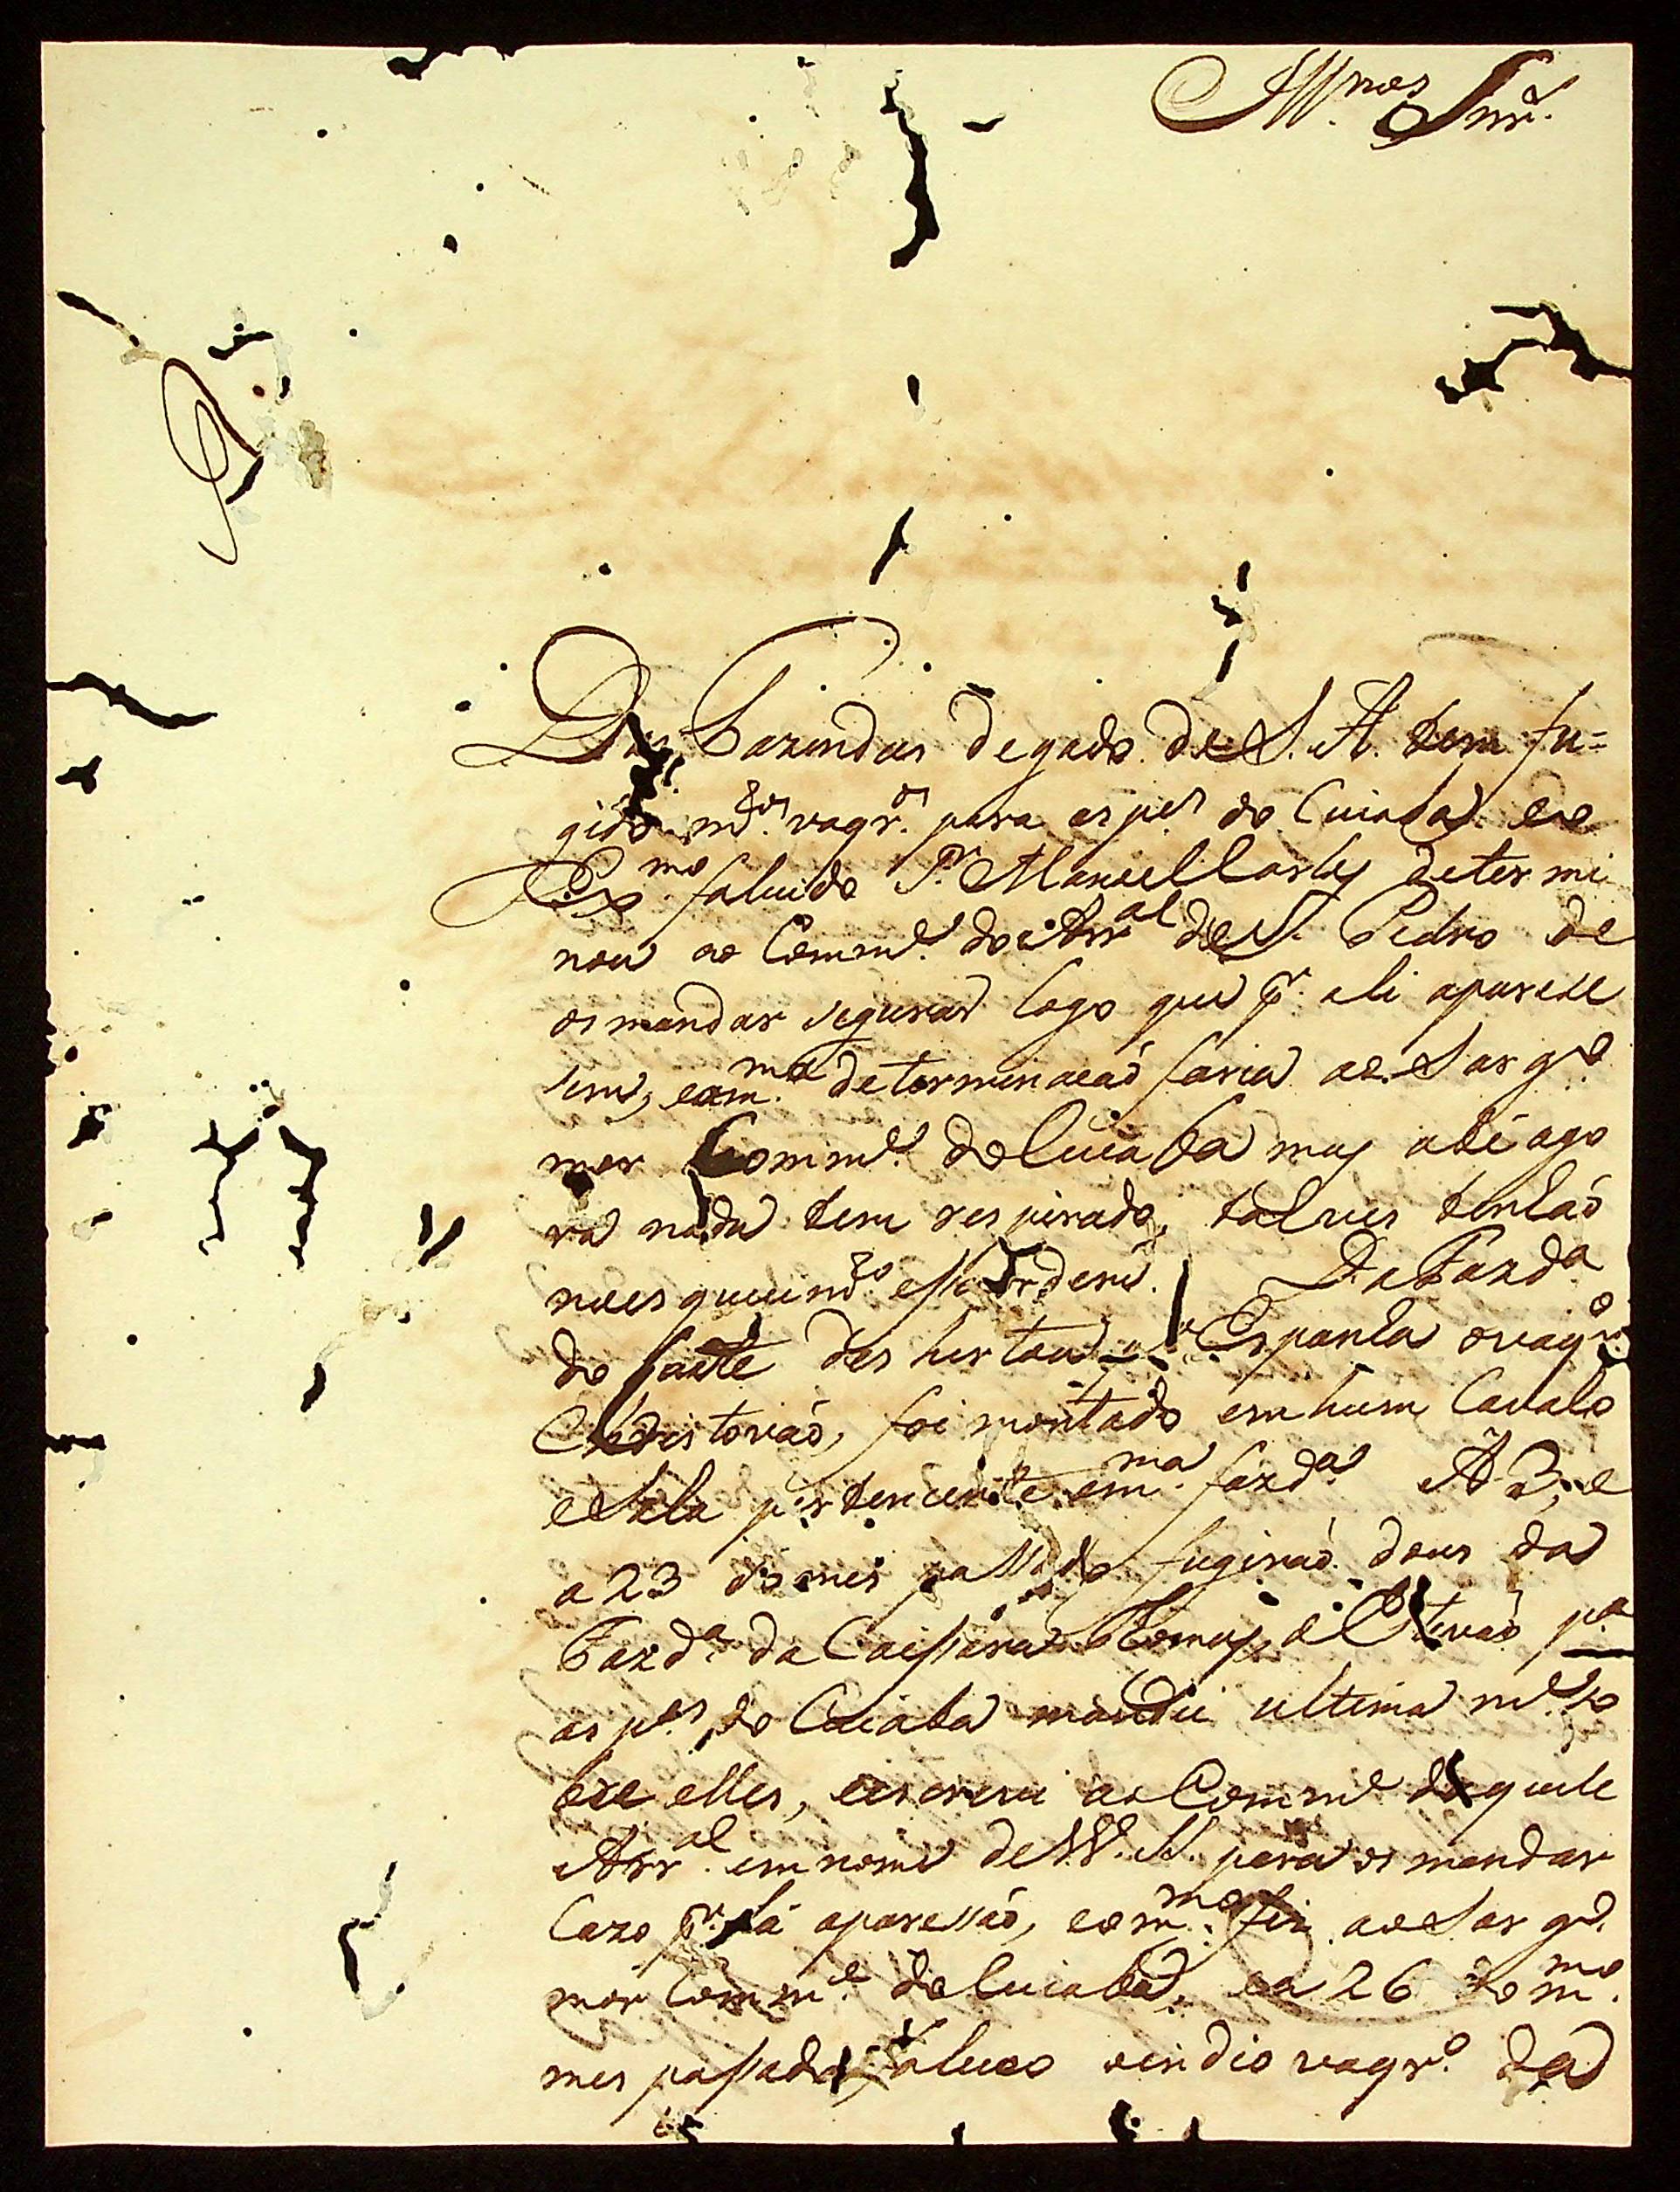 Ill.mos Snr.es
Das Fazendas de gado de S. A. tem fu=
gido m.tos vaqr.os para as p.es do Cuiabá eo
Ex.mo falecido Sr. Manoel Carlos determi
nou ao Comm.e do Arr.al de S. Pedro de
os mandar segurar logo que pr. ali aparece
sem, eam.ma determinacaõ faria ao Sarg.to
mor Comm.e do Cuiaba mas até ago
ra nada tem respirado, talves tenhaõ
nos quecimt.o essa ordem. Da Fazd.a
do Caeté deshertou p.a Espanha o vaqr.o
Christovaõ, foi montado em hum Cavalo
e Sela pertencente em.ma fazd.a A 3, e
a 23 do mes passado fugiraõ dous da
Fazd.a da Caissara Thomas, e Estevaõ p.a
as p.es do Cuiaba mandei ultimam.e so
bre elles, e escrevi ao Comm.e daquele
Arr.al em nome de W. S. para os mandar
Cazo pr. lá aparessaõ, eom.mo fiz ao Sarg.to
mor Comm.e do Cuiabá, ea 26 do m.mo
mes passado faleceo oindio vaqr.o da